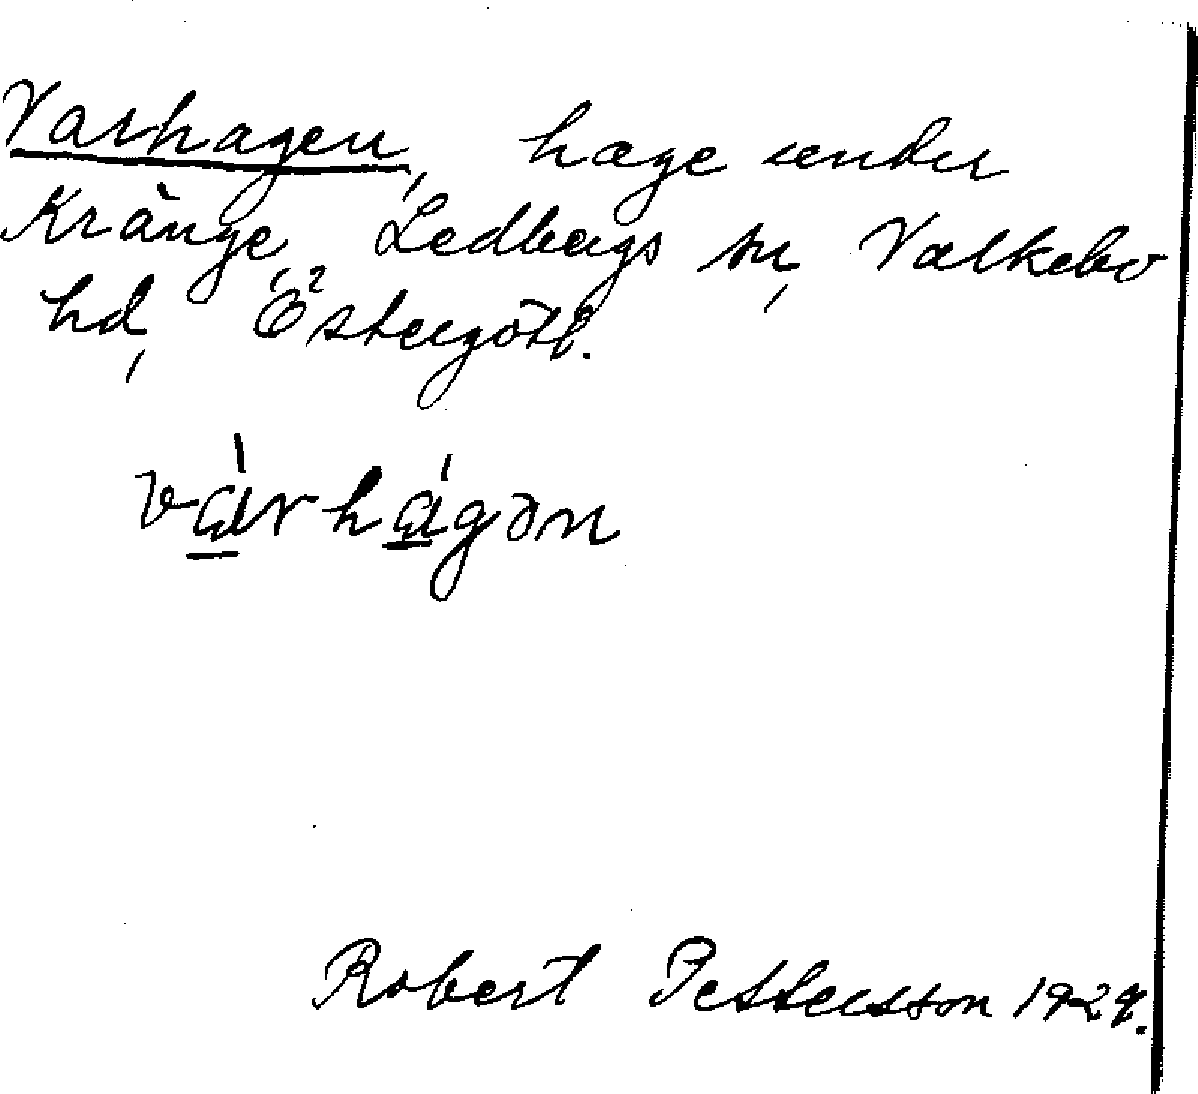 Varhagen, hage under
Kränge, Ledbergs sn, Valkebo
hd, Östergötl.
vàrhágən
Robert Pettersson 1929.